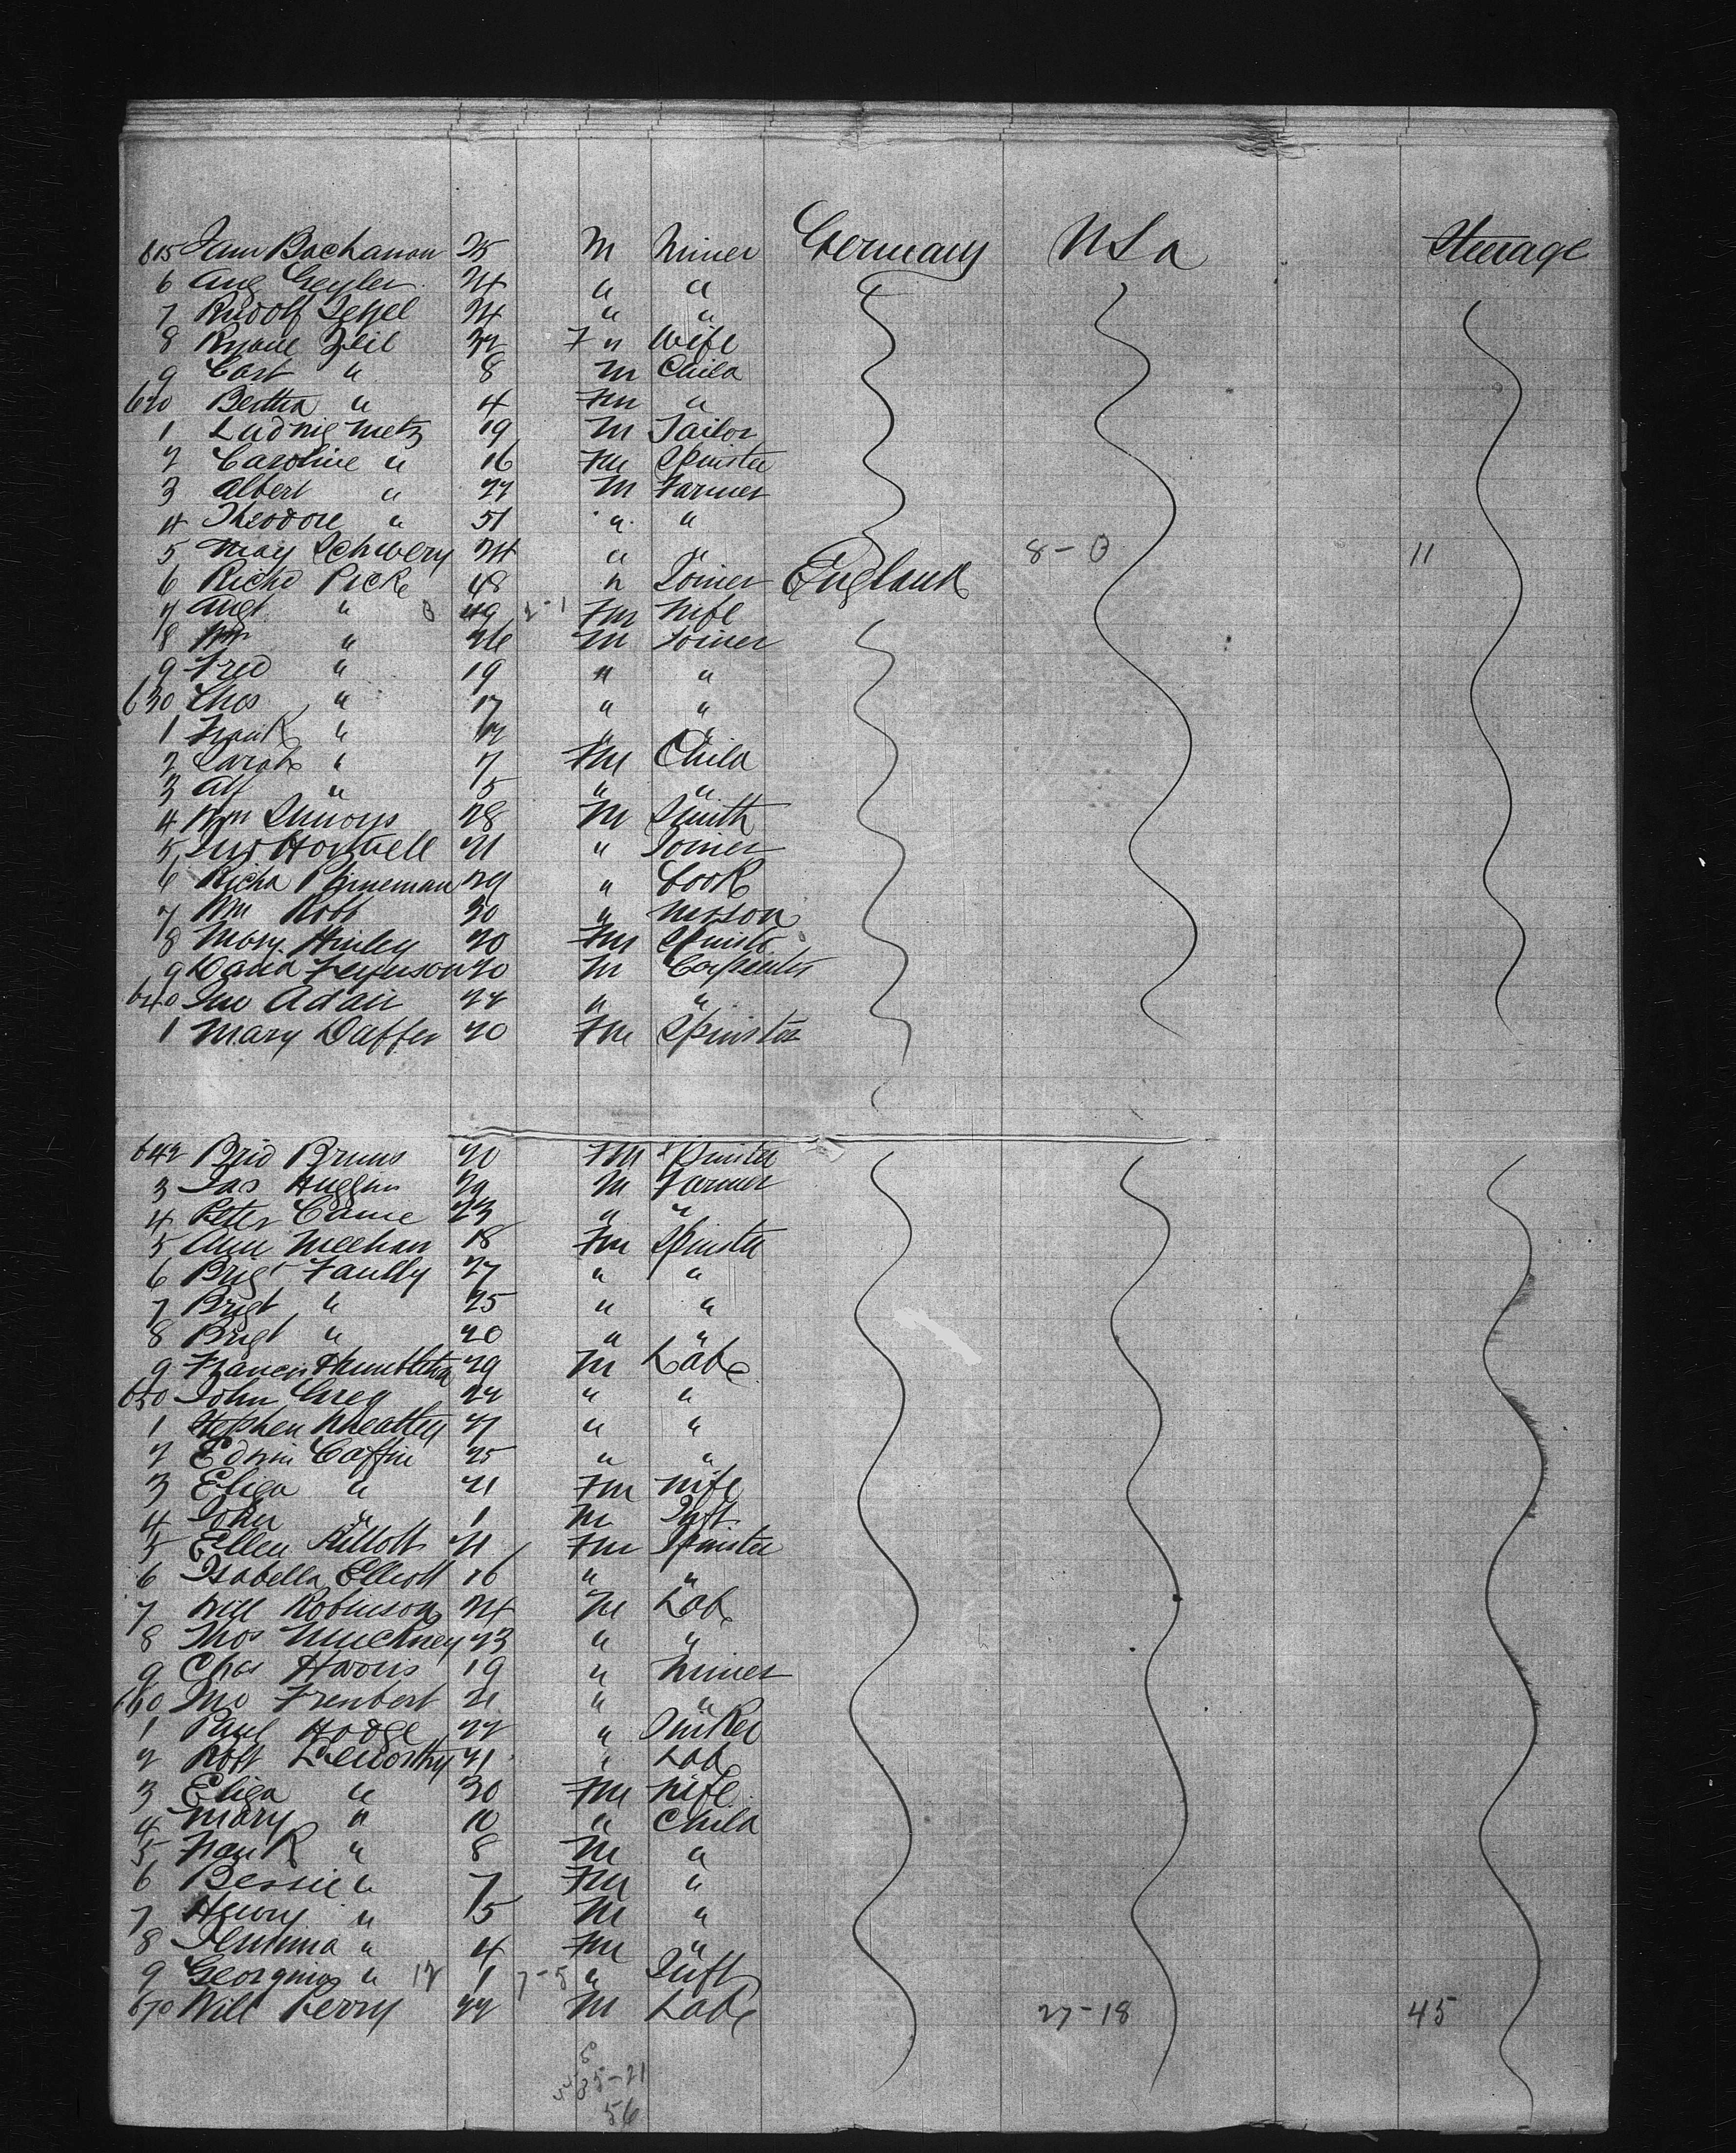 615 Bachanan 25 M Miner Germany USa Steerage
6 Aug Geyler 24 " "
7 Rudolf 24 " "
8 Zeil 32 F " Wife
9 Carl " 8 M Child
620 Bertha " 4 Fm "
1 Ludwig Metz 19 M Tailor
2 Caroline " 16 Fm Spinster
3 Albert " 22 M Farmer
4 Theodore " 51 " "
5 May 24 " " 8-0 11
6 Richd Pick 48 " Joiner England
7 " 49 2-1 Fm Wife
8 Wm " 26 M Joiner
9 Fred " 19 " "
630 Chas " 17 " "
1 Frank " " "
2 Sarah " 7 Fm Child
3 Alf " " "
4 Wm 28 M Smith
5 21 " Joiner
6 Richd 29 " Cook
7 Wm Robb 30 " Mason
8 Mary Hinley 20 Fm Spinster
9 David Ferguson 20 M Carpenter
640 Jno Adair 22 " "
1 Mary Daffer 20 Fm Spinster
642 Brid Bruns 20 Fm Spinster
3 Jas Huggins 29 M Farmer
4 Peter 23 " "
5 Ann Meehan 18 Fm Spinster
6 27 " "
7 Brigt " 25 " "
8 Brigt " 20 " "
9 Francis 29 M Labr
650 John Greg 22 " "
1 Stephen Wheatley " "
2 Edwin Coffin 25 " "
3 Eliza " 21 Fm Wife
4 John " 1 M Inft
5 Ellen 21 Fm Spinster
6 Isabella Elliott 16 " "
7 Will Robinson 24 M Labr
8 Thos 23 " "
9 Chas Harris 19 " Miner
660 Jno 21 " "
1 Paul Hodge 22 "
2 Robt Leworthy " Labr
3 Eliza " 30 Fm Wife
4 Mary " 10 " Child
5 Frank " 8 M "
6 Bessie " 7 Fm "
7 Henry " M "
8 Jemima " 4 Fm "
9 " 12 1 7-5 " Inft
670 Will Perry 22 M Labr 27-18 45
35-21
56